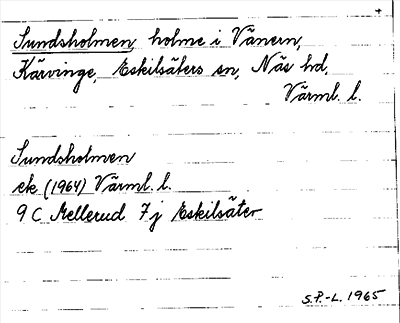 Sundsholmen, holme i Vänern,
Kärvinge, Eskilsäters sn, Näs hd,
Värml. l.
Sundsholmen
ek. (1964) Värml. l.
9 C Mellerud 7 j Eskilsäter
S.P.-L. 1965